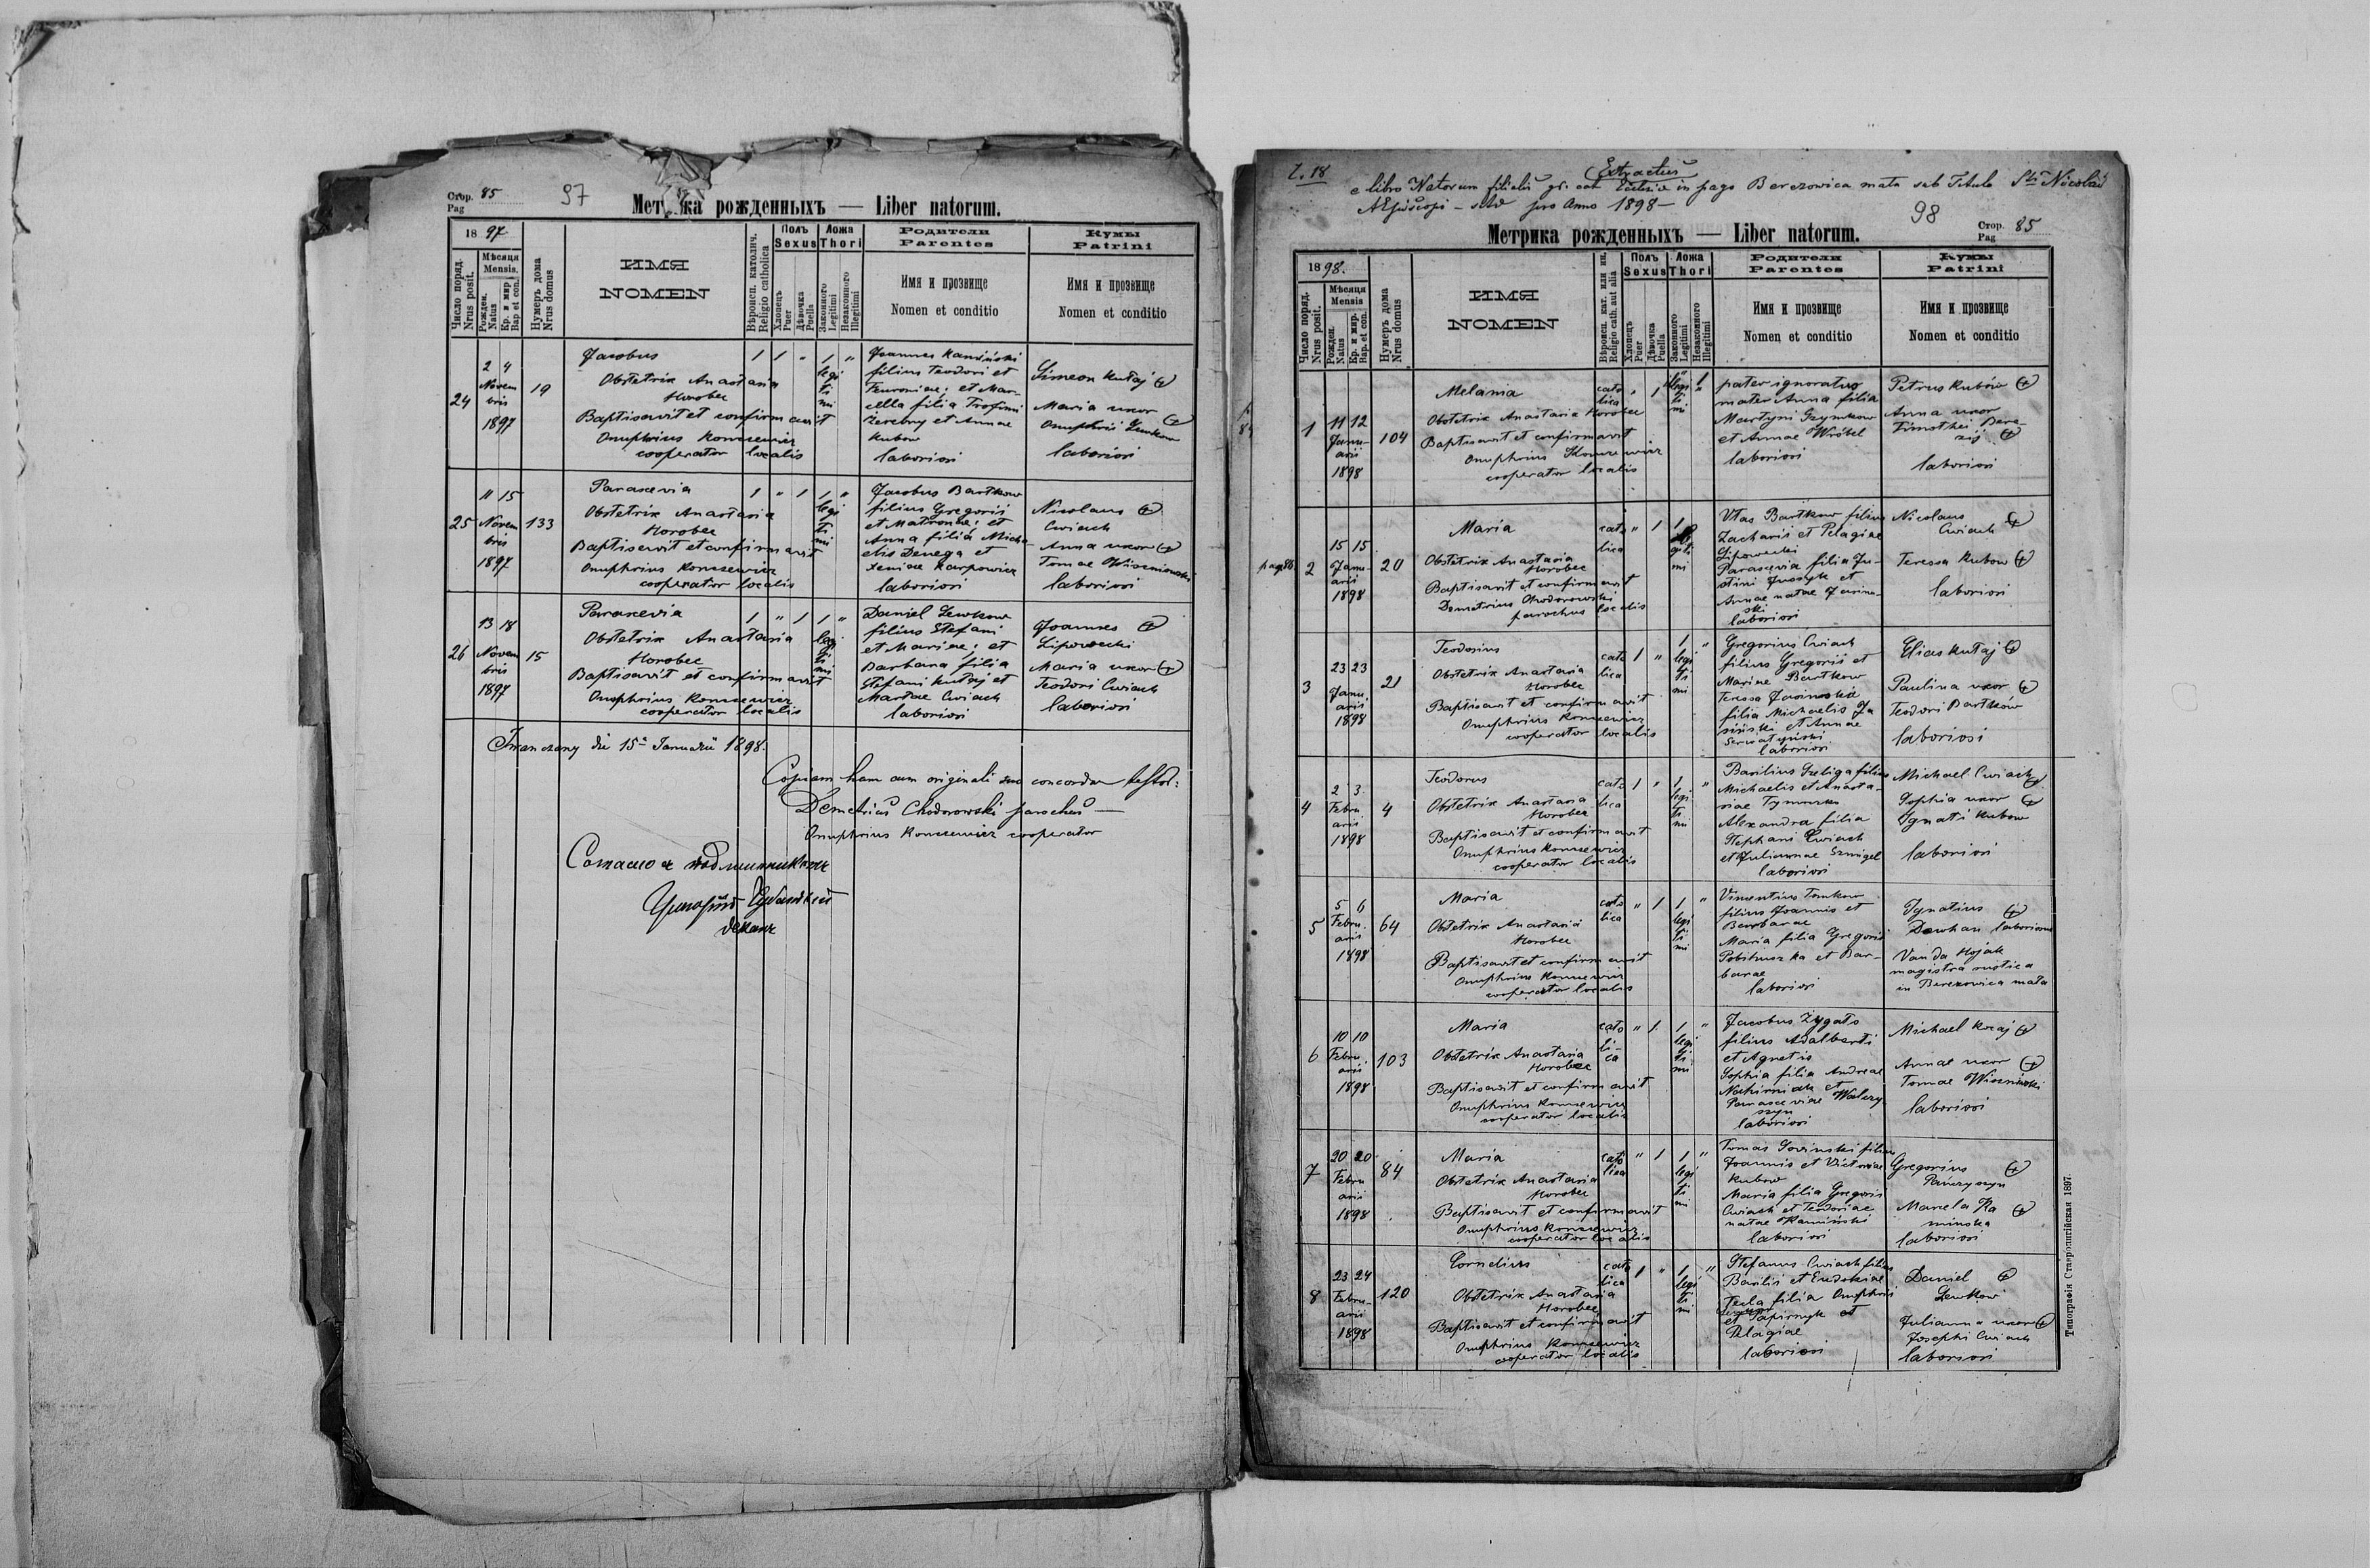 Стор. 85
Pag
97
Метрика рожденныхъ — Liber natorum.
1897
Число поряд.
Nrus posit.
Мѣсяця
Mensis.
Рожден.
Natus
Кр. и мир
Bap et con.
Нумеръ дома
Nrus domus
ИМЯ
NOMEN
Вѣроисп. католич.
Religio catholica
Полъ
Sexus
Хлопецъ
Puer
Дѣвочка
Puella
Ложа
Thori
Законного
Legitimi
Незаконного
Illegitimi
Родители
Parentes
Имя и прозвище
Nomen et conditio
Кумы
Patrini
Имя и прозвище
Nomen et conditio
24
2 4
Novem
bris
1897
19
Jacobus
Obstetrix Anastasia
Horobec
Baptisavit et confirmavit
Onuphrius
cooperator localis
1 1 " 1 "
legi
ti
mi
Joannes Kamiński
filius Teodori et
et Mar-
cella filia Trofimi
et Annae
Kubow
laboriosi
Simeon Kutaj
Maria uxor
Onuphrii Lewkow
laboriosi
25
11 15
Novem
bris
1897
133
Parascevia
Obstetrix Anastasia
Horobec
Baptisavit et confirmavit
Onuphrius
cooperator localis
1 " 1 1 "
legi
ti
mi
Jacobus Bartkow
filius Gregorii
et Matronae; et
Anna filia Micha
elis Denega et
Xeniae Karpowicz
laboriosi
Nicolaus
Cwiach
Anna uxor
Tomae Wiszniowski
laboriosi
26
13 18
Novem
bris
1897
15
Parascevia
Obstetrix Anastasia
Horobec
Baptisavit et confirmavit
Onuphrius
cooperator localis
1 " 1 1 "
legi
ti
mi
Daniel Lewkow
filius Stefani
et Mariae; et
Barbara filia
Stefani Kutaj et
Martae Cwiach
laboriosi
Joannes
Lipowecki
Maria uxor
Teodori Cwiach
laboriosi
die 15a Januarii 1898.
Copiam hanc cum originali suo concordare testor:
Demetrius Chodorowski parochus
Onuphrius cooperator
Согласно съ подлинникомъ
деканъ
Z. 18
Extractus
e libro Natorum filialis gr. cat. Ecclesiae in pago Berezowica mała sub Titulo Sti Nicolai
AEpiscopi pro Anno 1898
98
Стор. 85
Pag
Метрика рожденныхъ — Liber natorum.
1898.
Число поряд.
Nrus posit.
Мѣсяця
Mensis
Рожден.
Natus
Кр. и мир.
Bap. et con.
Нумеръ дома
Nrus domus
ИМЯ
NOMEN
Вѣроисп. кат. или ин.
Religio cath. aut alia
Полъ
Sexus
Хлопецъ
Puer
Дѣвочка
Puella
Ложа
Thori
Законного
Legitimi
Незаконного
Illegitimi
Родители
Parentes
Имя и прозвище
Nomen et conditio
Кумы
Patrini
Имя и прозвище
Nomen et conditio
1
11 12
Janu-
arii
1898
104
Melania
Obstetrix Anastasia Horobec
Baptisavit et confirmavit
Onuphrius
cooperator localis
cato
lica
" 1
pater ignoratus
mater Anna filia
Martyni Szymkow
et Annae Wróbel
laboriosi
Petrus Kubów
Anna uxor
Timothei Bere-
laboriosi
pag 86
2
15 15
Janu-
arii
1898
20
Maria
Obstetrix Anastasia
Horobec
Baptisavit et confirmavit
Demetrius Chodorowski
parochus localis
cato
lica
" 1 1
Vlas Bartkow filius
Zacharii et Pelagiae
Lipowecki
Parascevia filia Ju-
stini et
Annae natae Jasin-
ski
laboriosi
Nicolaus
Cwiach
Teressa Kubow
laboriosi
3
23 23
Janu.
arii
1898
21
Teodosius
Obstetrix Anastasia
Horobec
Baptisavit et confirmavit
Onuphrius
cooperator localis
cato
lica
1 " 1 "
legi
ti
mi
Gregorius Cwiach
filius Gregorii et
Mariae Bartkow
Teressa Jasinska
filia Michaelis Ja
sinski et Annae
laboriosi
Elias Kutaj
Paulina uxor
Teodori Bartków
laboriosi
4
2 3
Febru
arii
1898
4
Teodorus
Obstetrix Anastasia
Horobec
Baptisavit et confirmavit
Onuphrius
cooperator localis
cato
lica
1 " 1 "
legi
ti
mi
Basilius Szeliga filius
Michaelis et Anasta-
siae
Alexandra filia
Stephani Cwiach
et Julianae Szmigel
laboriosi
Michael Cwiach
Sophia uxor
Ignati Kubow
laboriosi
5
5 6
Febru.
arii
1898
64
Maria
Obstetrix Anastasia
Horobec
Baptisavit et confirmavit
Onuphrius
cooperator localis
cato
lica
" 1 1 "
legi
ti
mi
Vincentius Tomkow
filius Joannis et
Barbarae
Maria filia Gregorii
et Bar-
barae
laboriosi
Ignatius
laboriosus
Vanda Hojak
magistra rustica
in Berezowica mała
6
10 10
Febru.
arii
1898
103
Maria
Obstetrix Anastasia
Horobec
Baptisavit et confirmavit
Onuphrius
cooperator localis
cato
li-
ca
" 1 1 "
legi
ti
mi
Jacobus Zygało
filius Adalberti
et Agnetis
Sophia filia Andreae
Nahirniak et
Parasceviae Walczy-
szyn
laboriosi
Michael Kozaj
Annae uxor
Tomae Wiszniowski
laboriosi
7
20 20
Febru
arii
1898
84
Maria
Obstetrix Anastasia
Horobec
Baptisavit et confirmavit
Onuphrius
cooperator localis
cato
lica
" 1 1 "
legi
ti
mi
Tomas filius
Joannis et Victoriae
Kubow
Maria filia Gregorii
Cwiach et Teodoriae
natae Kamiński
laboriosi
Gregorius
Panczyszyn
Marcela Ka
minska
laboriosi
8
23 24
Febru-
arii
1898
120
Cornelius
Obstetrix Anastasia
Horobec
Baptisavit et confirmavit
Onuphrius
cooperator localis
cato
lica
1 " 1 "
legi
ti
mi
Stefanus Cwiach filius
Basilii et Eudokiae
Tecla filia Onuphrii
et Papirnyk et
Pelagiae
laboriosi
Daniel
Lewkow
Julianna uxor
Josephi Cwiach
laboriosi
Типографія Ставропигійская 1897.